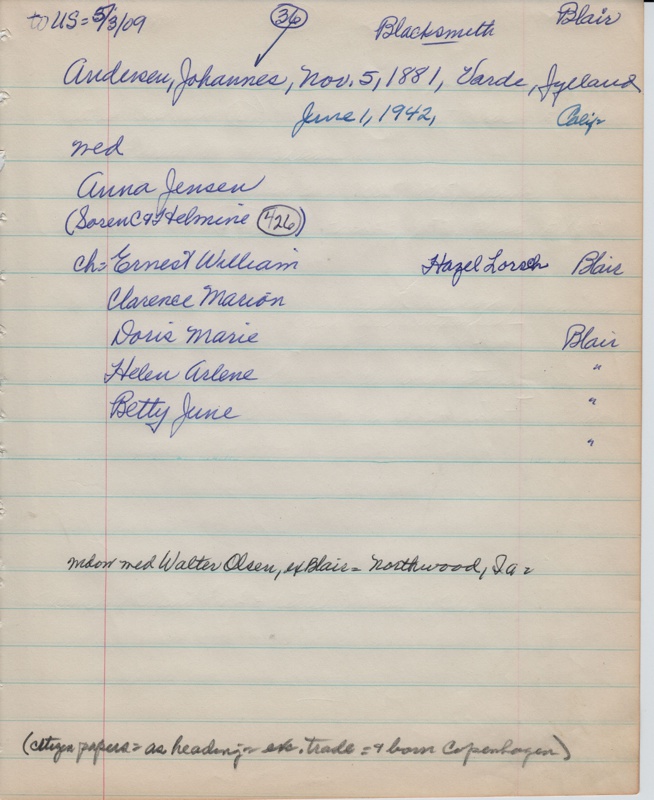 to US = 5/3/09 36 Blacksmith Blair
Andersen, Johannes, Nov. 5, 1881, Varde, Jylland
June 1, 1942, Calif.
med
Anna Jensen
(Soren C & Helmine 426)
ch = Ernest William Hazel Lorsch Blair
Clarence Marion
Doris Marie Blair
Helen Arlene "
Betty June "
"
med Walter Olsen, ex Blair = Northwood, Ia =
(citizen papers = as heading = exc. trade = & born Copenhagen)